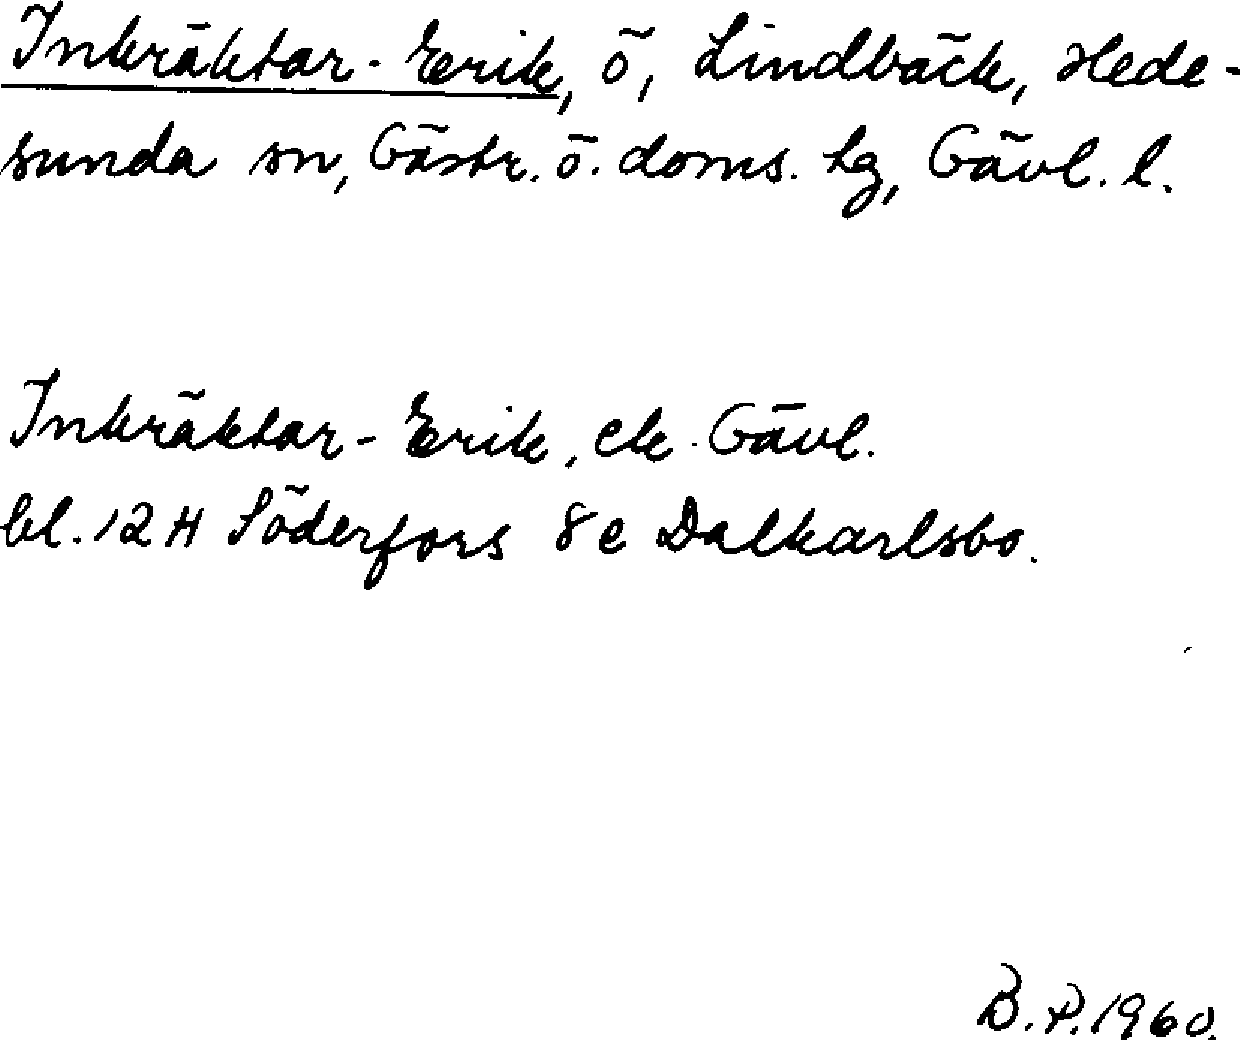 Inkräktar-Erik, ö, Lindbäck, Hede-
sunda sn, Gästr. ö. doms. lg, Gävl. l.
Inkräktar-Erik, ek. Gävl.
bl. 12 H Söderfors 8 e Dalkarlsbo.
B.P. 1960.